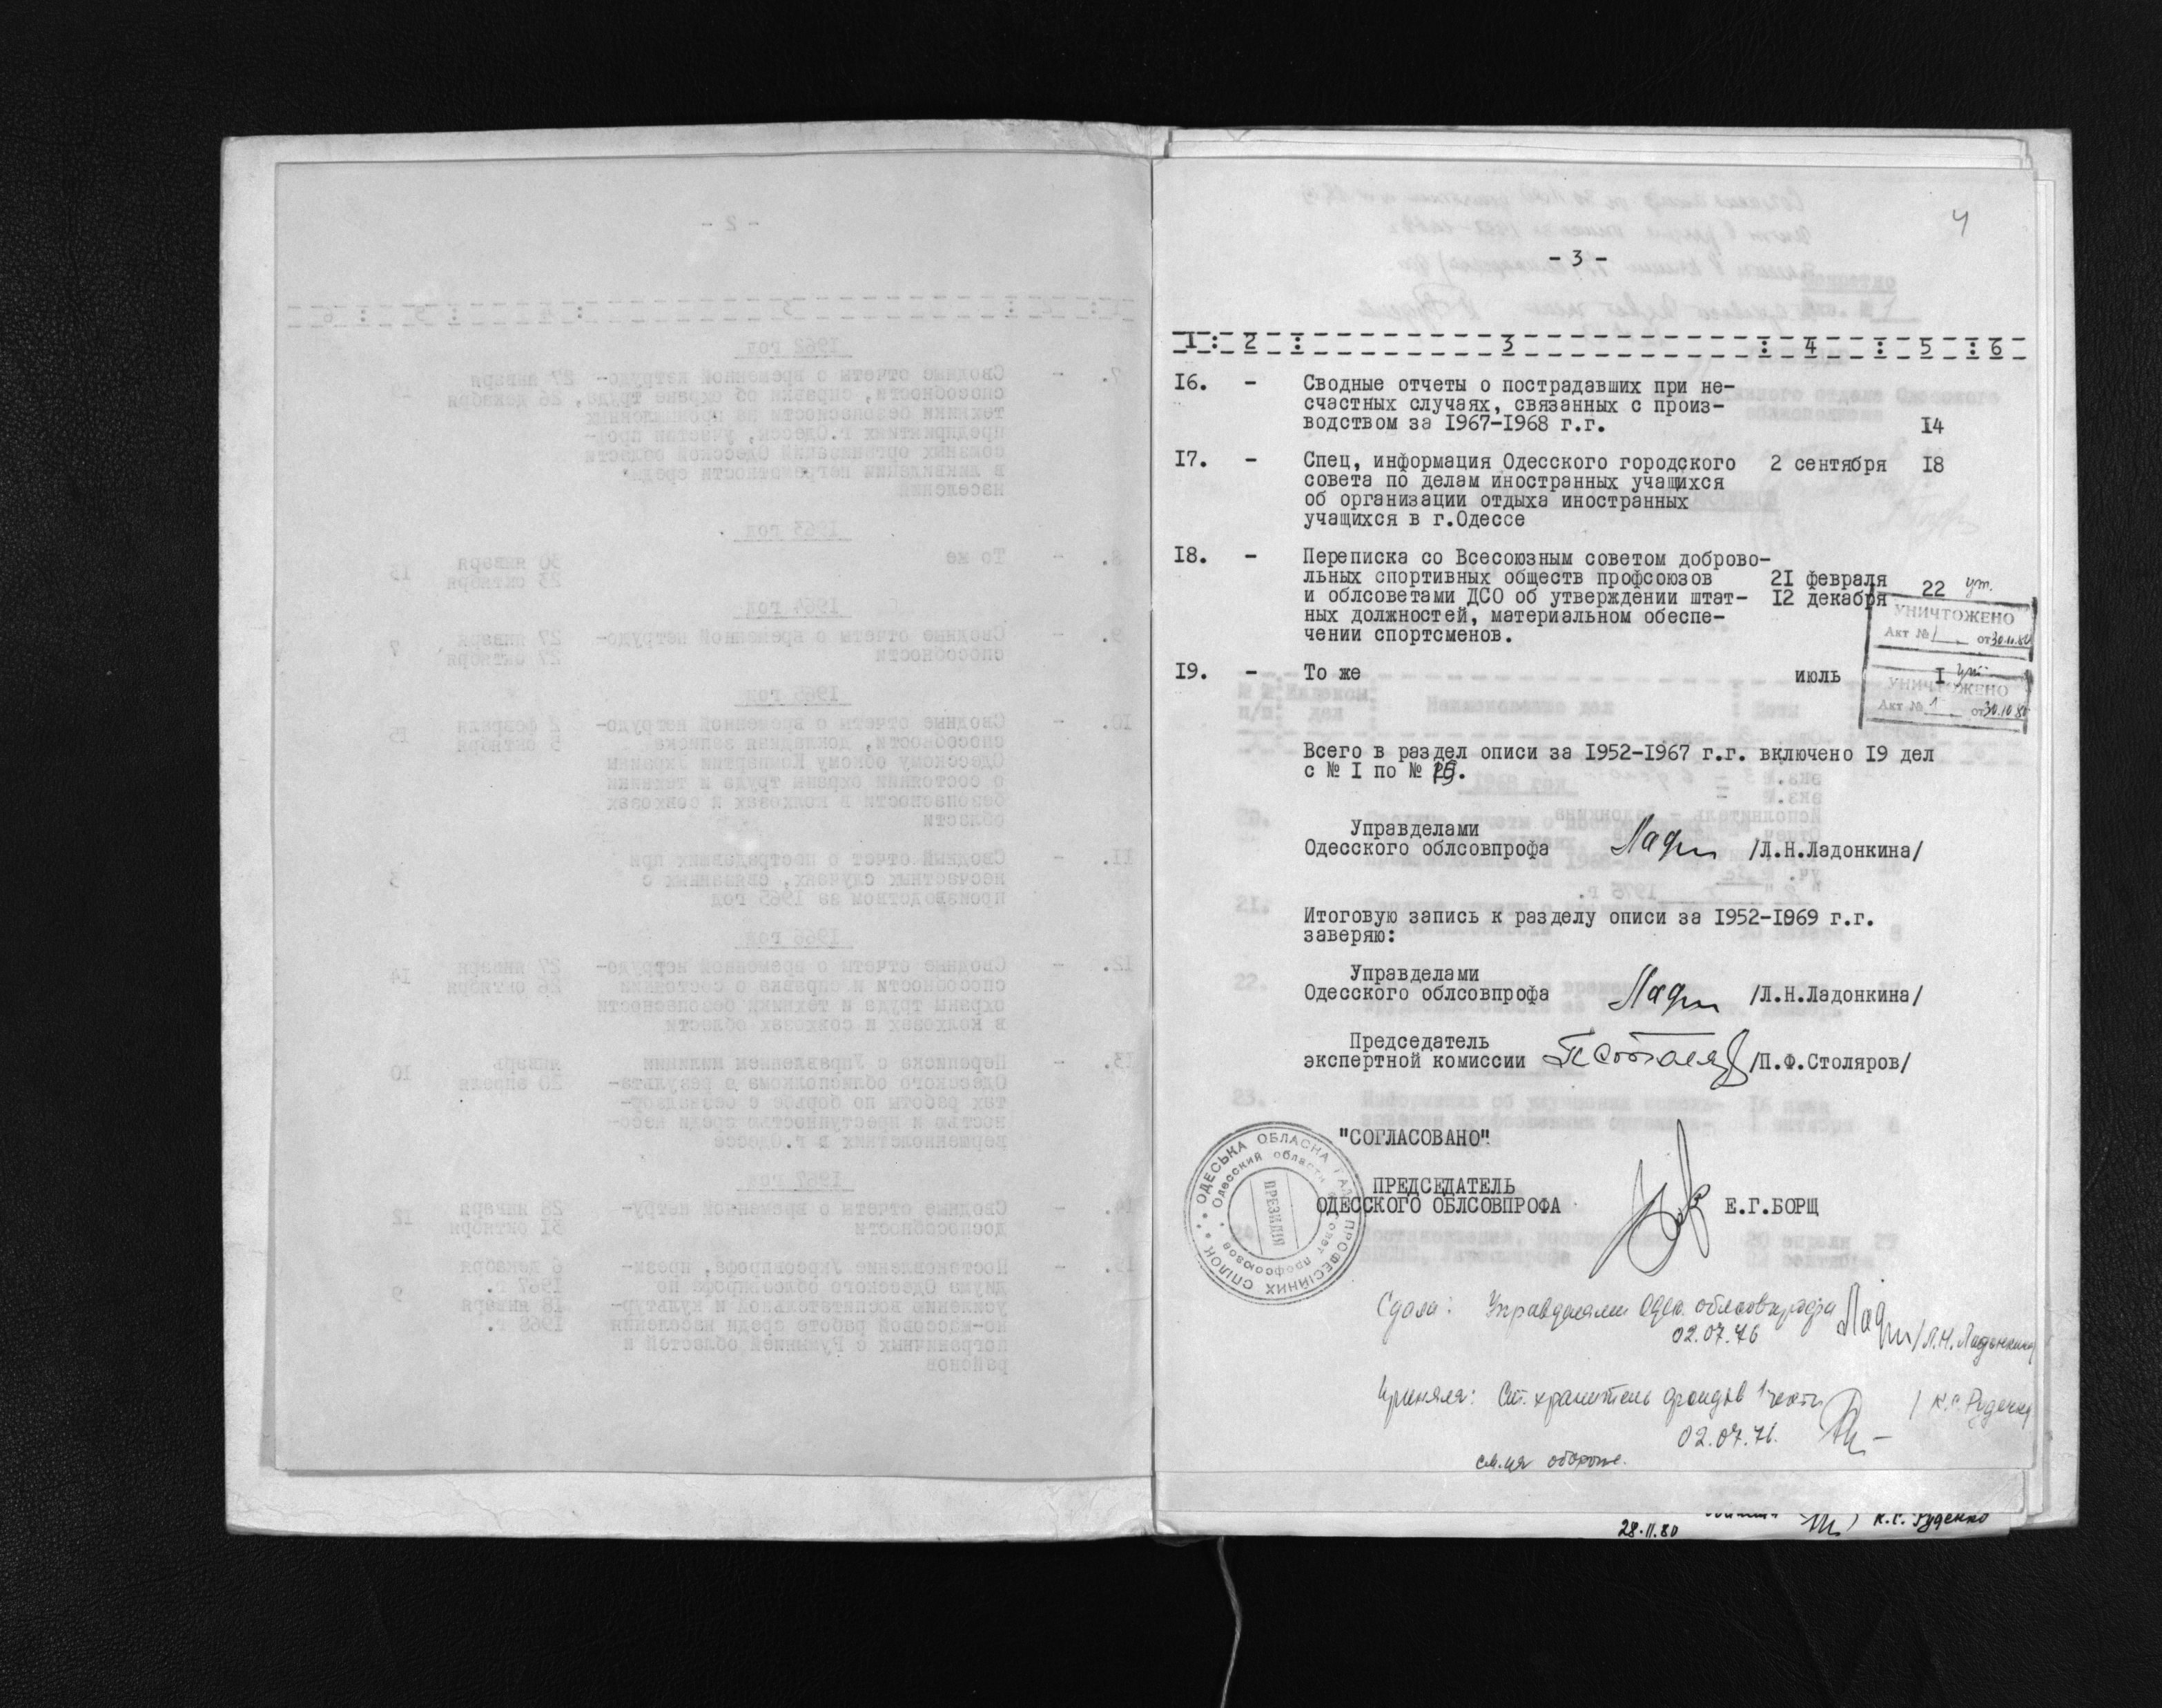 4
- 3 -
I : 2 : 3 : 4 : 5 : 6
I6. - Сводные отчеты о пострадавших при не-
счастных случаях, связанных с произ-
водством за I967-I968 г.г. I4
I7. - Спец, информация Одесского городского 2 сентября I8
совета по делам иностранных учащихся
об организации отдыха иностранных
учащихся в г.Одессе
I8. - Переписка со Всесоюзным советом доброво-
льных спортивных обществ профсоюзов 2I февраля
и облсоветами ДСО об утверждении штат- I2 декабря 22 ун.
ных должностей, материальном обеспе-
чении спортсменов.
УНИЧТОЖЕНО
Акт № 1 от
I9. - То же июль I
УНИЧТОЖЕНО
Акт № 1 от 30.10.80
Всего в раздел описи за I952-I967 г.г. включено I9 дел
с № I по № I9.
Управделами
Одесского облсовпрофа /Л.Н.Ладонкина/
Итоговую запись к разделу описи за I952-I969 г.г.
заверяю:
Управделами
Одесского облсовпрофа /Л.Н.Ладонкина/
Председатель
экспертной комиссии /П.Ф.Столяров/
"СОГЛАСОВАНО"
ПРЕДСЕДАТЕЛЬ
ОДЕССКОГО ОБЛСОВПРОФА Е.Г.БОРЩ
ОДЕСЬКА ОБЛАСНА РАДА ПРОФЕСІЙНИХ СПІЛОК
Одесский областной совет профсоюзов
ПРЕЗИДІЯ
Сдала: Управделами Одес. облсовпрофа /Л.Н. Ладонкина
02.07.76
Приняла: Ст. хранитель фондов / К.С. Руденко
02.07.76.
см. на обороте.
28.11.80 К.С. Руденко